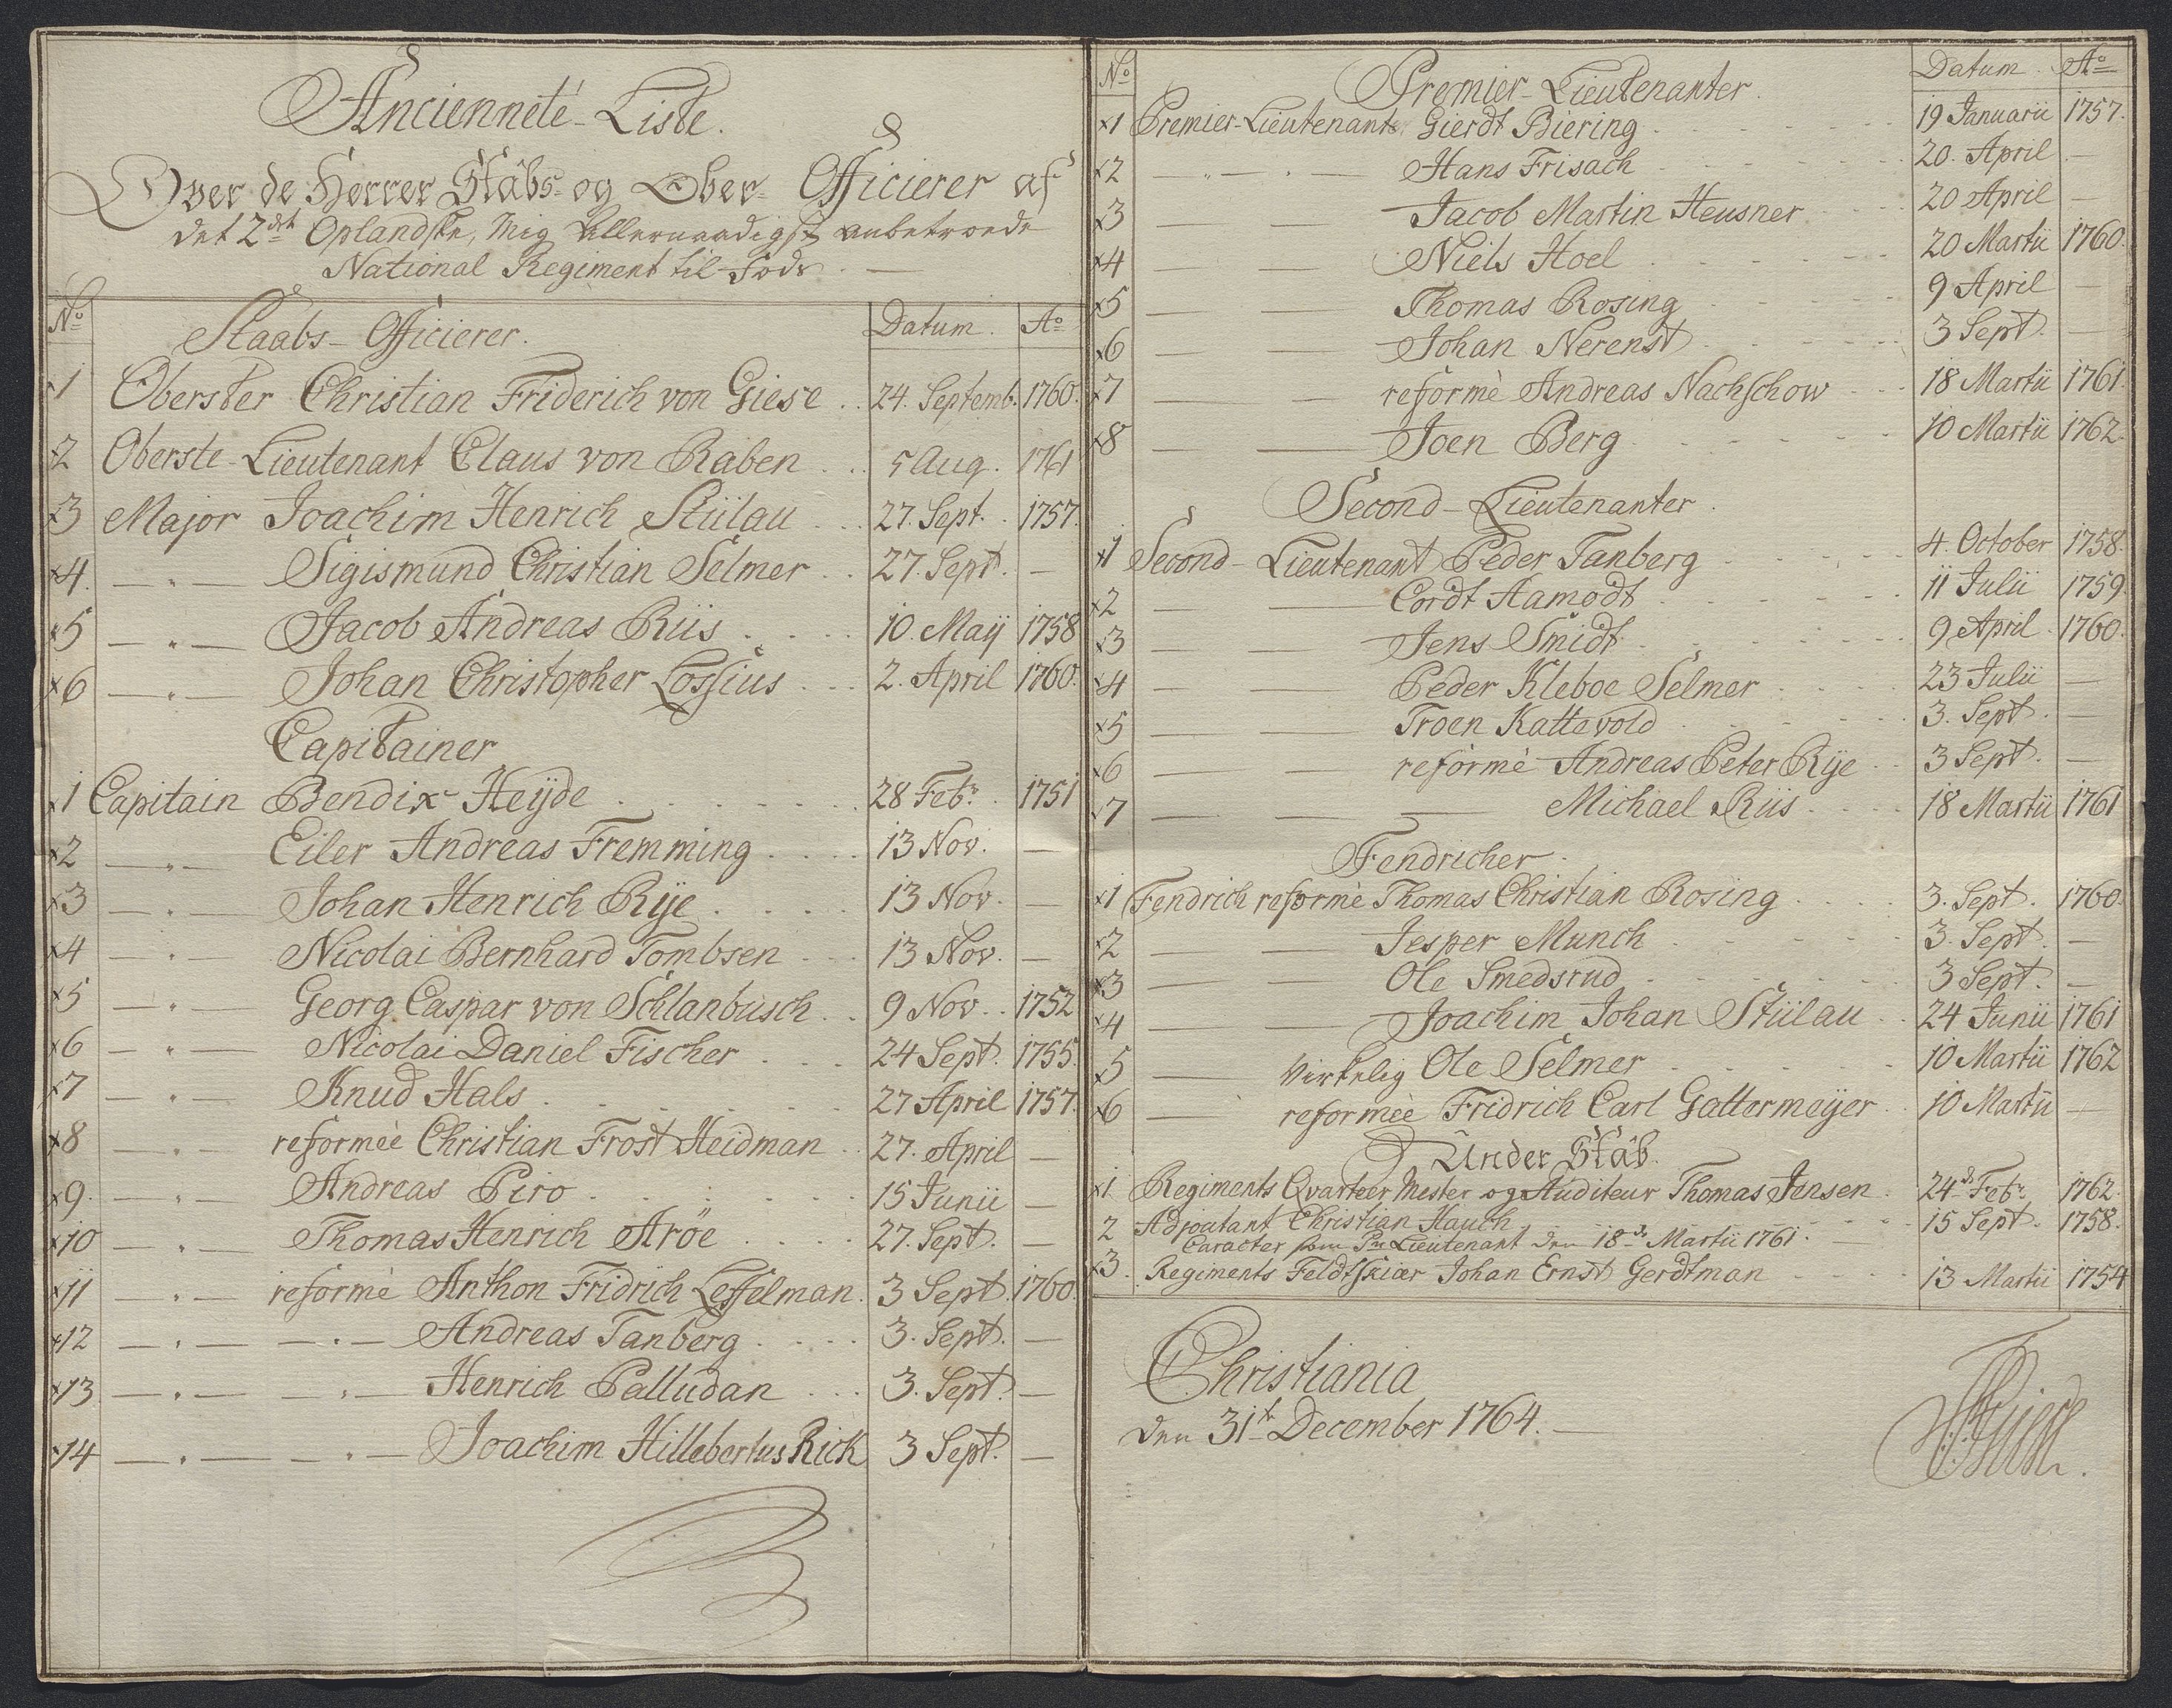 Ancienneté-Liste.
Over de Herrer Stäbs- og Ober- Officierer af
det 2det Oplandske, Mig Allernaadigst anbetroede
National Regiment til Fods. —
No Staabs-Officierer. Datum. Ao
1 Oberster Christian Friderich von Giese . . 24. Septemb. 1760.
2 Oberste-Lieutenant Claus von Raben . . . 5 Aug. 1761
3 Major Joachim Henrich Stülau . . . 27. Sept. 1757.
4. — " — Sigismund Christian Selmer . . 27. Sept. —
5 — " — Jacob Andreas Riis . . . . 10. Maij 1758
6 — " — Johan Christopher Lossius . . . 2. April 1760.
Capitainer
1 Capitain Bendix Heyde . . . . . . . 28 Febr. 1751
2 — " — Eiler Andreas Fremming . . . . 13 Nov. —
3 — " — Johan Henrich Rÿe . . . . . 13 Nov. —
4 — " — Nicolai Bernhard Tombsen . . . 13 Nov. —
5 — " — Georg Caspar von Schlanbusch . . 9 Nov. . 1752
6 — " — Nicolai Daniel Fischer . . . . 24 Sept. 1755.
7 — " — Knud Hals . . . . . . . . 27 April 1757.
8 — " — reformèe Christian Frost Heidman . . 27. April —
9. — " — Andreas Piro . . . . . . . 15 Junii —
10 — " — Thomas Henrich Aröe . . . . 27. Sept. —
11 — " — reformè Anthon Fridrich Leffelman. 3 Sept. 1760.
12 — " — — " — Andreas Tanberg . . . . 3. Sept. —
13 — " — — " — Henrich Palludan . . . 3. Sept. —
14 — " — — " — Joachim Hillebertus Rick 3 Sept. —
No Premier-Lieutenanter. Datum. Ao
1 Premier-Lieutenant Gierdt Biering . . . . . . 19 Januarii 1757.
2 — " — " — Hans Frisach . . . . . . 20. April —
3 — — Jacob Martin Heusner . . . 20 April —
4 — — Niels Hoel . . . . . . 20 Martii 1760.
5 — — Thomas Rosing . . . . . 9 April —
6 — — Johan Nerenst . . . . . 3 Sept. —
7 — — reformè Andreas Nachschow . . . 18 Martii 1761.
8 — — Joen Berg . . . . . . 10 Martii 1762.
Second-Lieutenanter.
1 Second-Lieutenant Peder Tanberg . . . . . 4. October 1758.
2 — — Cordt Aamodt . . . . . . 11 Julii 1759.
3 — — Jens Smidt . . . . . . 9 April 1760.
4 — — Peder Kleboe Selmer . . . . 23 Julii —
5 — — Troen Kattevold . . . . . 3. Sept. —
6 — — reformè Andreas Peter Rÿe . . 3 Sept. —
7 — — — Michael Riis . . . . 18 Martii 1761
Fendricher.
1 Fendrich reformè Thomas Christian Rosing . . . . 3. Sept. 1760.
2 — — Jesper Munch . . . . . 3. Sept. —
3 — — Ole Smedsrud . . . . . 3 Sept. —
4 — — Joachim Johan Stülau . . 24 Junii 1761
5 — virkelig Ole Selmer . . . . . . 10 Martii 1762
6 — reformèe Fridrich Carl Gattermeijer . . 10 Martii —
Under Stäb.
1 Regiments Qvarteer Mester og Auditeur Thomas Jensen . 24de Febr. 1762.
2 Adjoutant Christian Hauch . . . . . . 15 Sept. 1758.
Caracter som Pr. Lieutenant den 18de Martii 1761. —
3. Regiments Feldtskiær Johan Ernst Gerdtman . . . . 13 Martii 1754
Christiania
den 31te December 1764. —